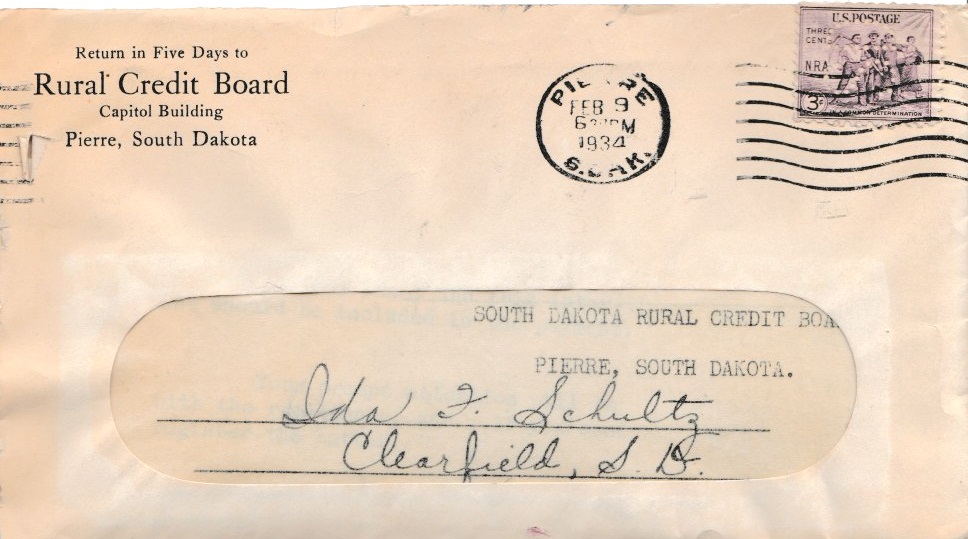 Return in Five Days to
Rural Credit Board
Capitol Building
Pierre, South Dakota
PIERRE
FEB 9
6 PM
1934
S.DAK.
U.S. POSTAGE
THREE
CENTS
N.R.A.
3c
COMMON DETERMINATION
SOUTH DAKOTA RURAL CREDIT BOA
PIERRE, SOUTH DAKOTA.
Ida F. Schultz
Clearfield, S. D.